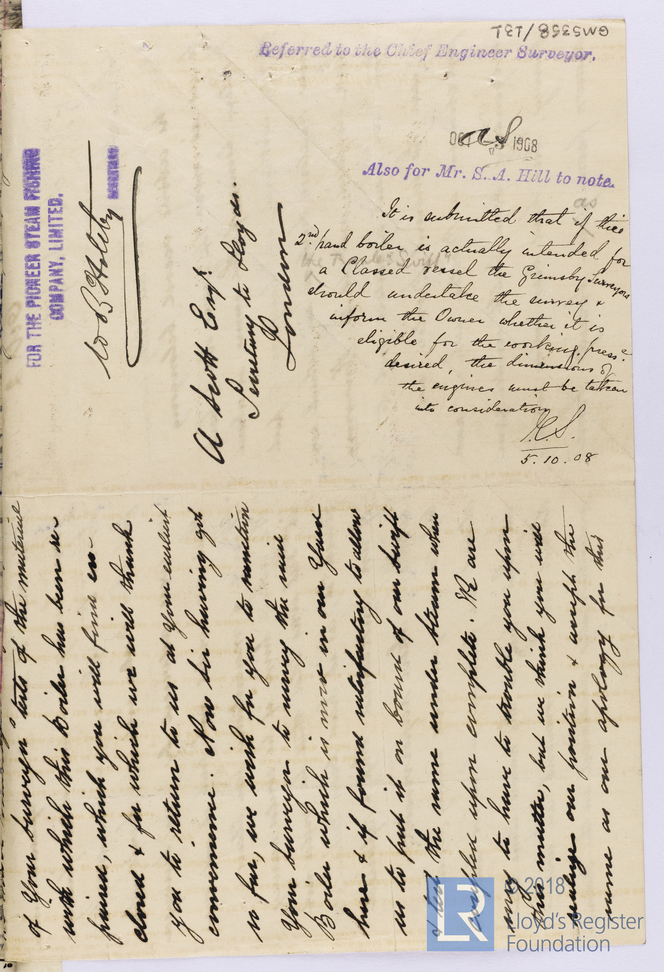 GM5358/131
Referred to the Chief Engineer Surveyor.
OCT 5 1908
Also for Mr. S. A. Hill to note.
It is submitted that if this
2nd hand boiler is actually intended for
a Classed vessel the Grimsby Surveyors
should undertake the survey &
inform the Owner whether it is
eligible for the working press:
desired, the dimensions of
the engines must be taken
into consideration
5.10.08
of your Surveyor's tests of the material
with which this Boiler has been re-
paired, which you will find en-
closed & for which we will thank
you to return to us at your earliest
convenience. Now Sir having got
so far, we wish for you to sanction
Your Surveyor to survey the said
Boiler which is now in our Yard
here & if found satisfactory to allow
us to put it on board of our Swift
& test the same under steam when
upon complete. We are
sorry to have to trouble you upon
this matter, but we think you will
realize our position & accept the
same as our apology for this
A Scott Esq.
Secretary to Lloyds.
London
FOR THE PIONEER STEAM FISHING
COMPANY, LIMITED.
W B
SECRETARY
LR
© 2018
Lloyd's Register
Foundation